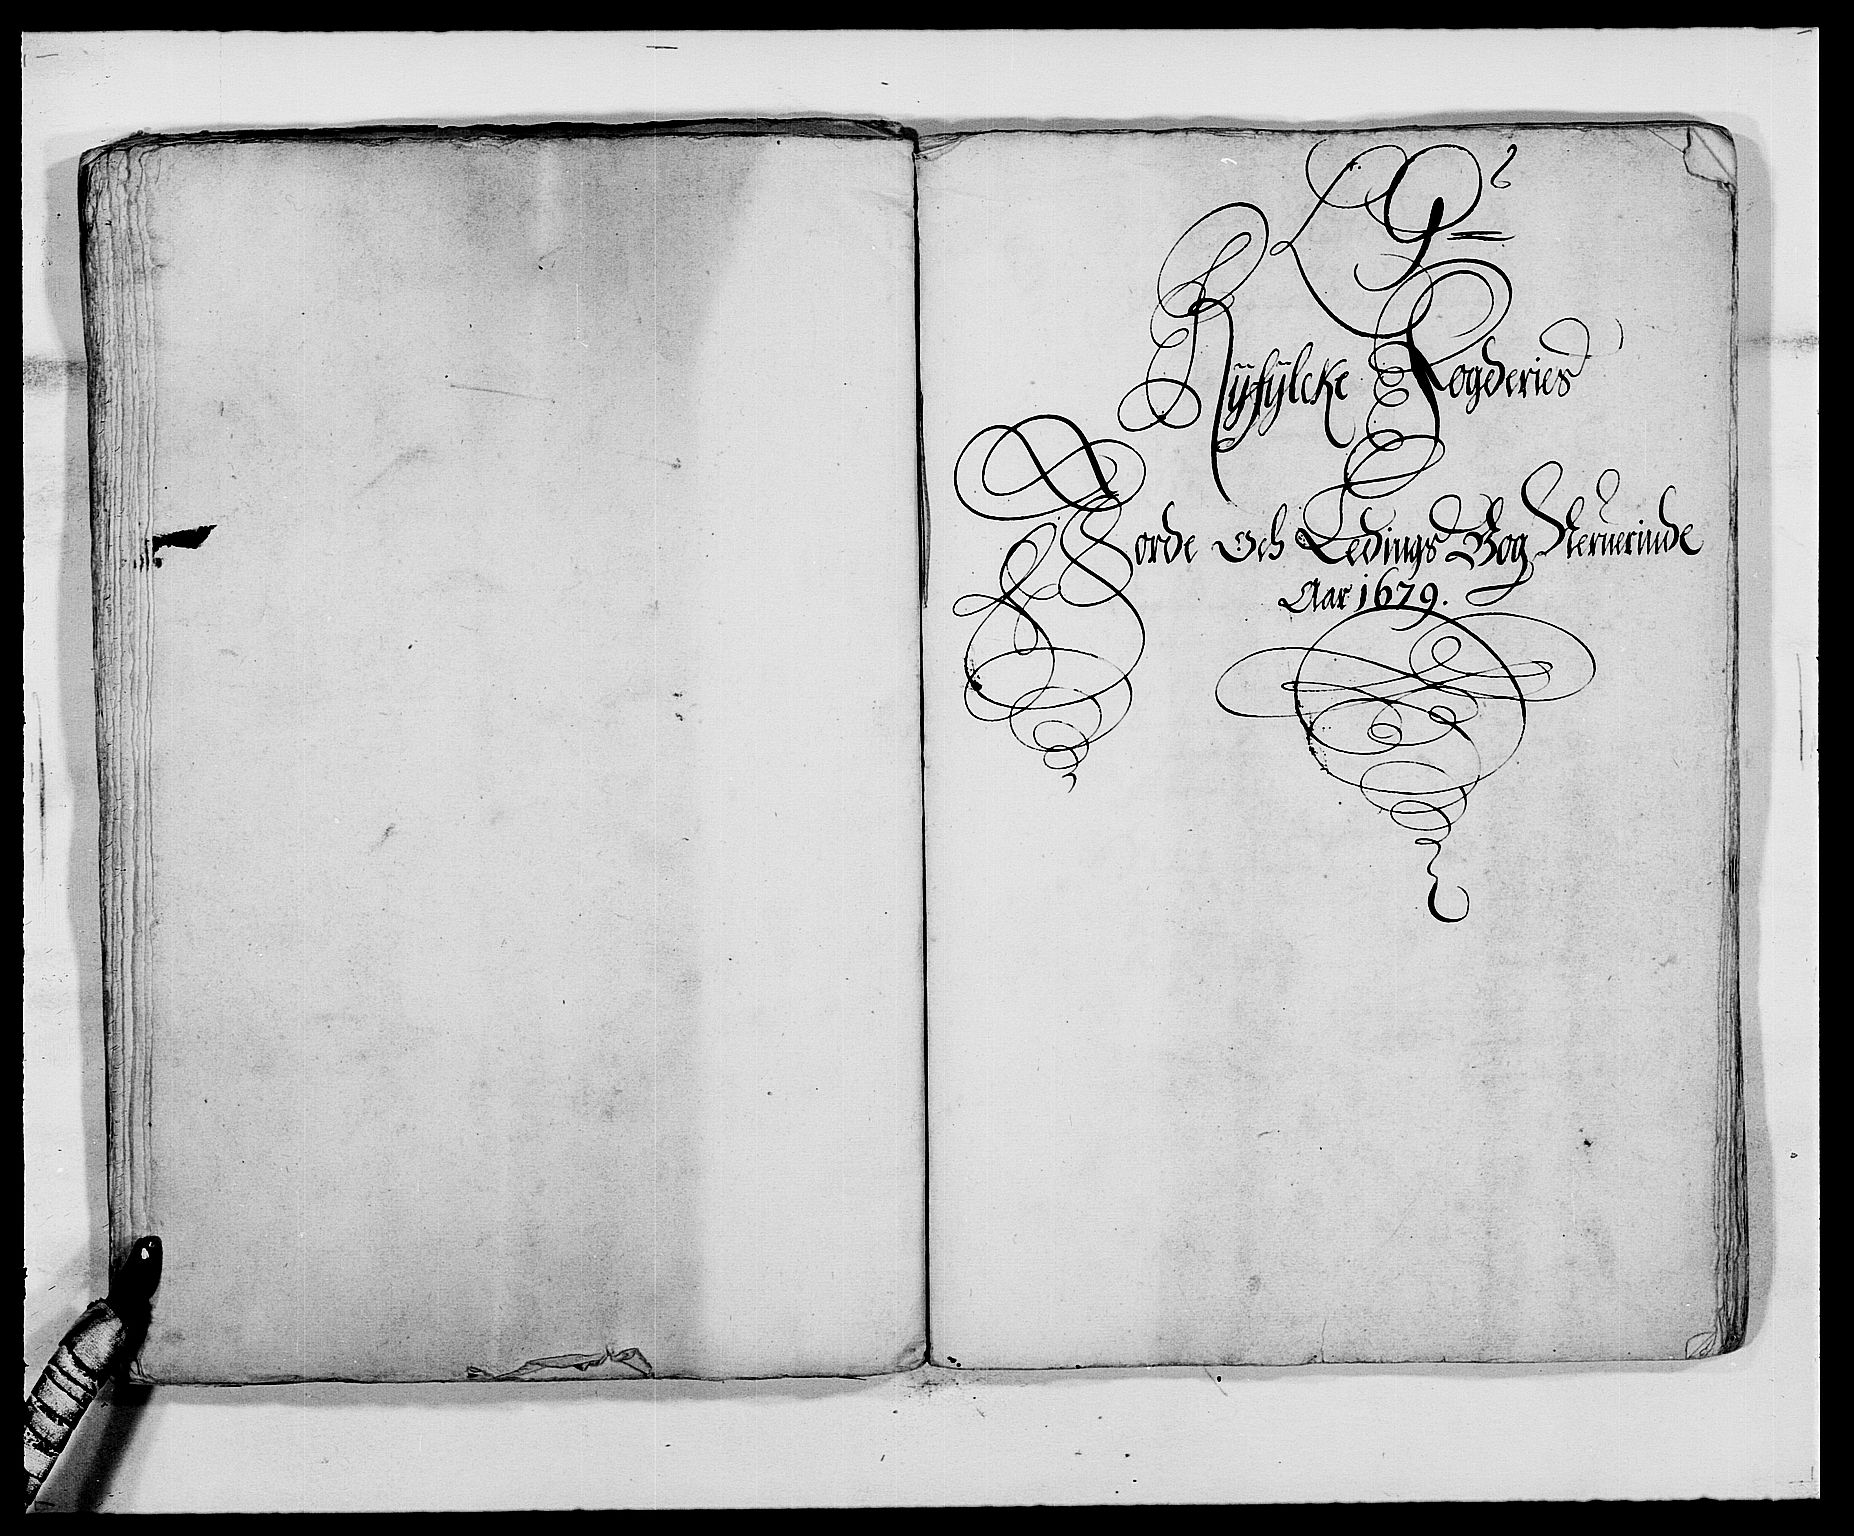 Ryfylcke Fogderies
Jorde Och Ledings Bog Neruerinde
Aar 1679.